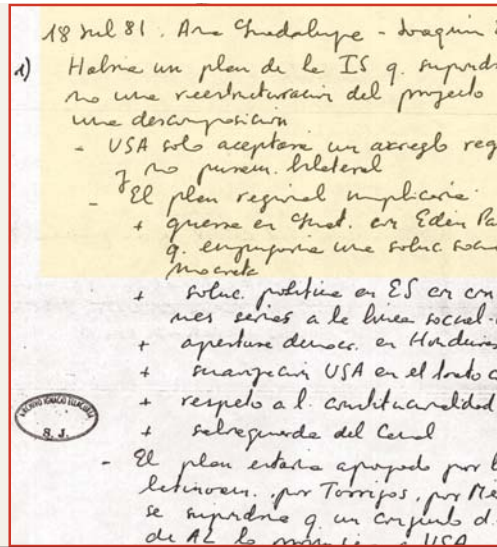 18 Jul 81. Ana Guadalupe - Joaquin
1) Habria un plan de la IS q. supondr
no una reestructuracion del proyecto
una descomposicion
- USA solo aceptara un arreglo reg
y no puram. bilateral
- El plan regional implicaria.
+ guerra en Guat. con Eden Pa
q. empujaria una soluc soc
mocrata
+ soluc. politica en ES con con
nes series a la linea social.
+ apertura democ. en Honduras
+ USA en el trato c
+ respeto a l. constitucionalidad
+ salvaguarda del Canal
ARCHIVO IGNACIO ELLACURIA
S. J.
- El plan estaria apoyado por l
latinoam. por Torrijos, por Me
se supondria q. un conjunto d
de AL lo a USA